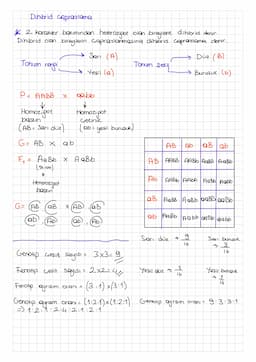 Dihibrit Çaprazlama
* 2 karakter bakımından heterozigot olan bireylere dihibrit denir.
Dihibrit olan bireylerin çaprazlanmasına dihibrit çaprazlama denir.
Tohum rengi Sarı (A) Yeşil (a)
Tohum şekli Düz (B) Buruşuk (b)
P = AABB x aabb
Homozigot baskın (AB = Sarı düz)
Homozigot çekinik (ab = yeşil buruşuk)
G = AB x ab
F₁ = AaBb x AaBb
Heterozigot baskın
G = AB Ab AB Ab
aB ab aB ab
AB Ab aB ab
AB AABB AABb AaBB AaBb
Ab AABb AAbb AaBb Aabb
aB AaBB AaBb aaBB aaBb
ab AaBb Aabb aaBb aabb
Sarı düz → 9/16 Sarı buruşuk → 3/16
Yeşil düz → 3/16 Yeşil buruşuk → 1/16
Genotip çeşit sayısı = 3x3 = 9
Fenotip çeşit sayısı = 2x2 = 4
Fenotip ayrışım oranı = (3:1) x (3:1)
Genotip ayrışım oranı = (1:2:1) x (1:2:1)
9:3:3:1